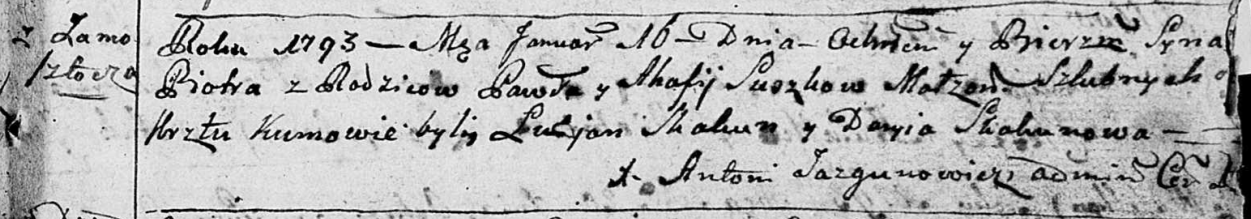 z Zamo
szłocza
Roku 1793 — Mca Januar 16 – Dnia – Ochrzcił y Bierzm Syna
Piotra z Rodzicow Pawła y Ahafij Suszkow Małżon Szlubnych
Krztu Kumowie byli Lucjan Skakun y Daryia Skakunowa —
X. Antoni Jazgunowicz admin Cer